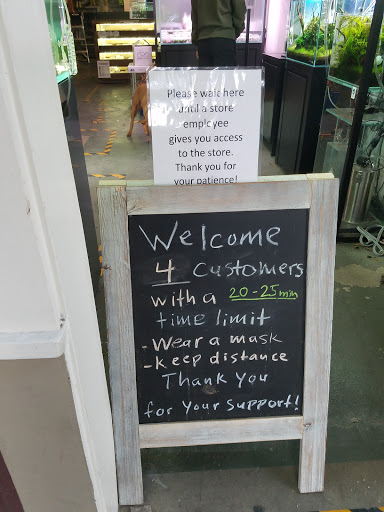 Please wait here
until a store
employee
gives you access
to the store.
Thank you for
your patience!
Welcome
4 customers
with a 20-25 min
time limit
- Wear a mask
- keep distance
Thank you
for Your support!